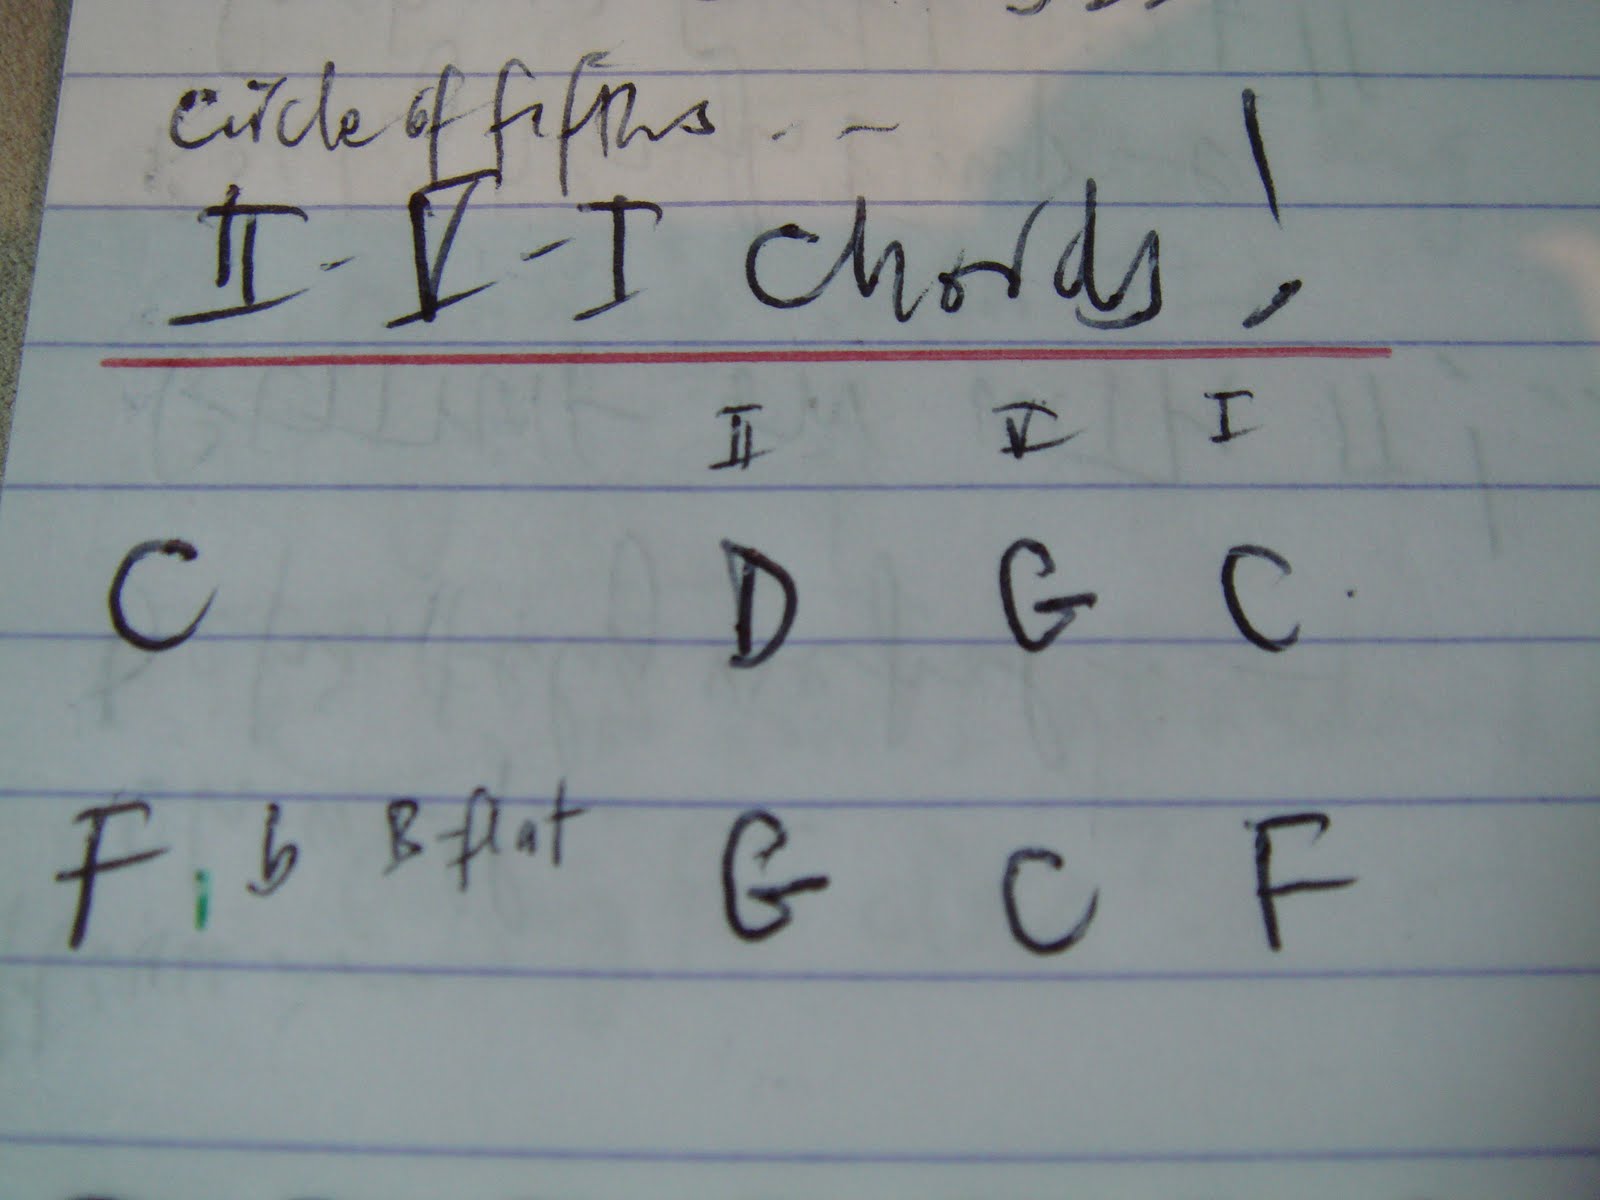 circle of fifths . . ~
II - V - I Chords!
II V I
C D G C .
F, b B flat G C F